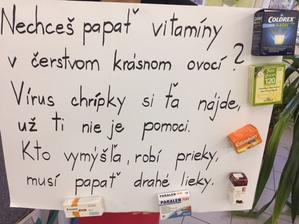 Nechceš papať vitamíny
v čerstvom krásnom ovocí?
Vírus chrípky si ťa nájde,
už ti nie je pomoci.
Kto vymýšľa, robí prieky,
musí papať drahé lieky.
COLDREX
120
PARALEN
PARALEN